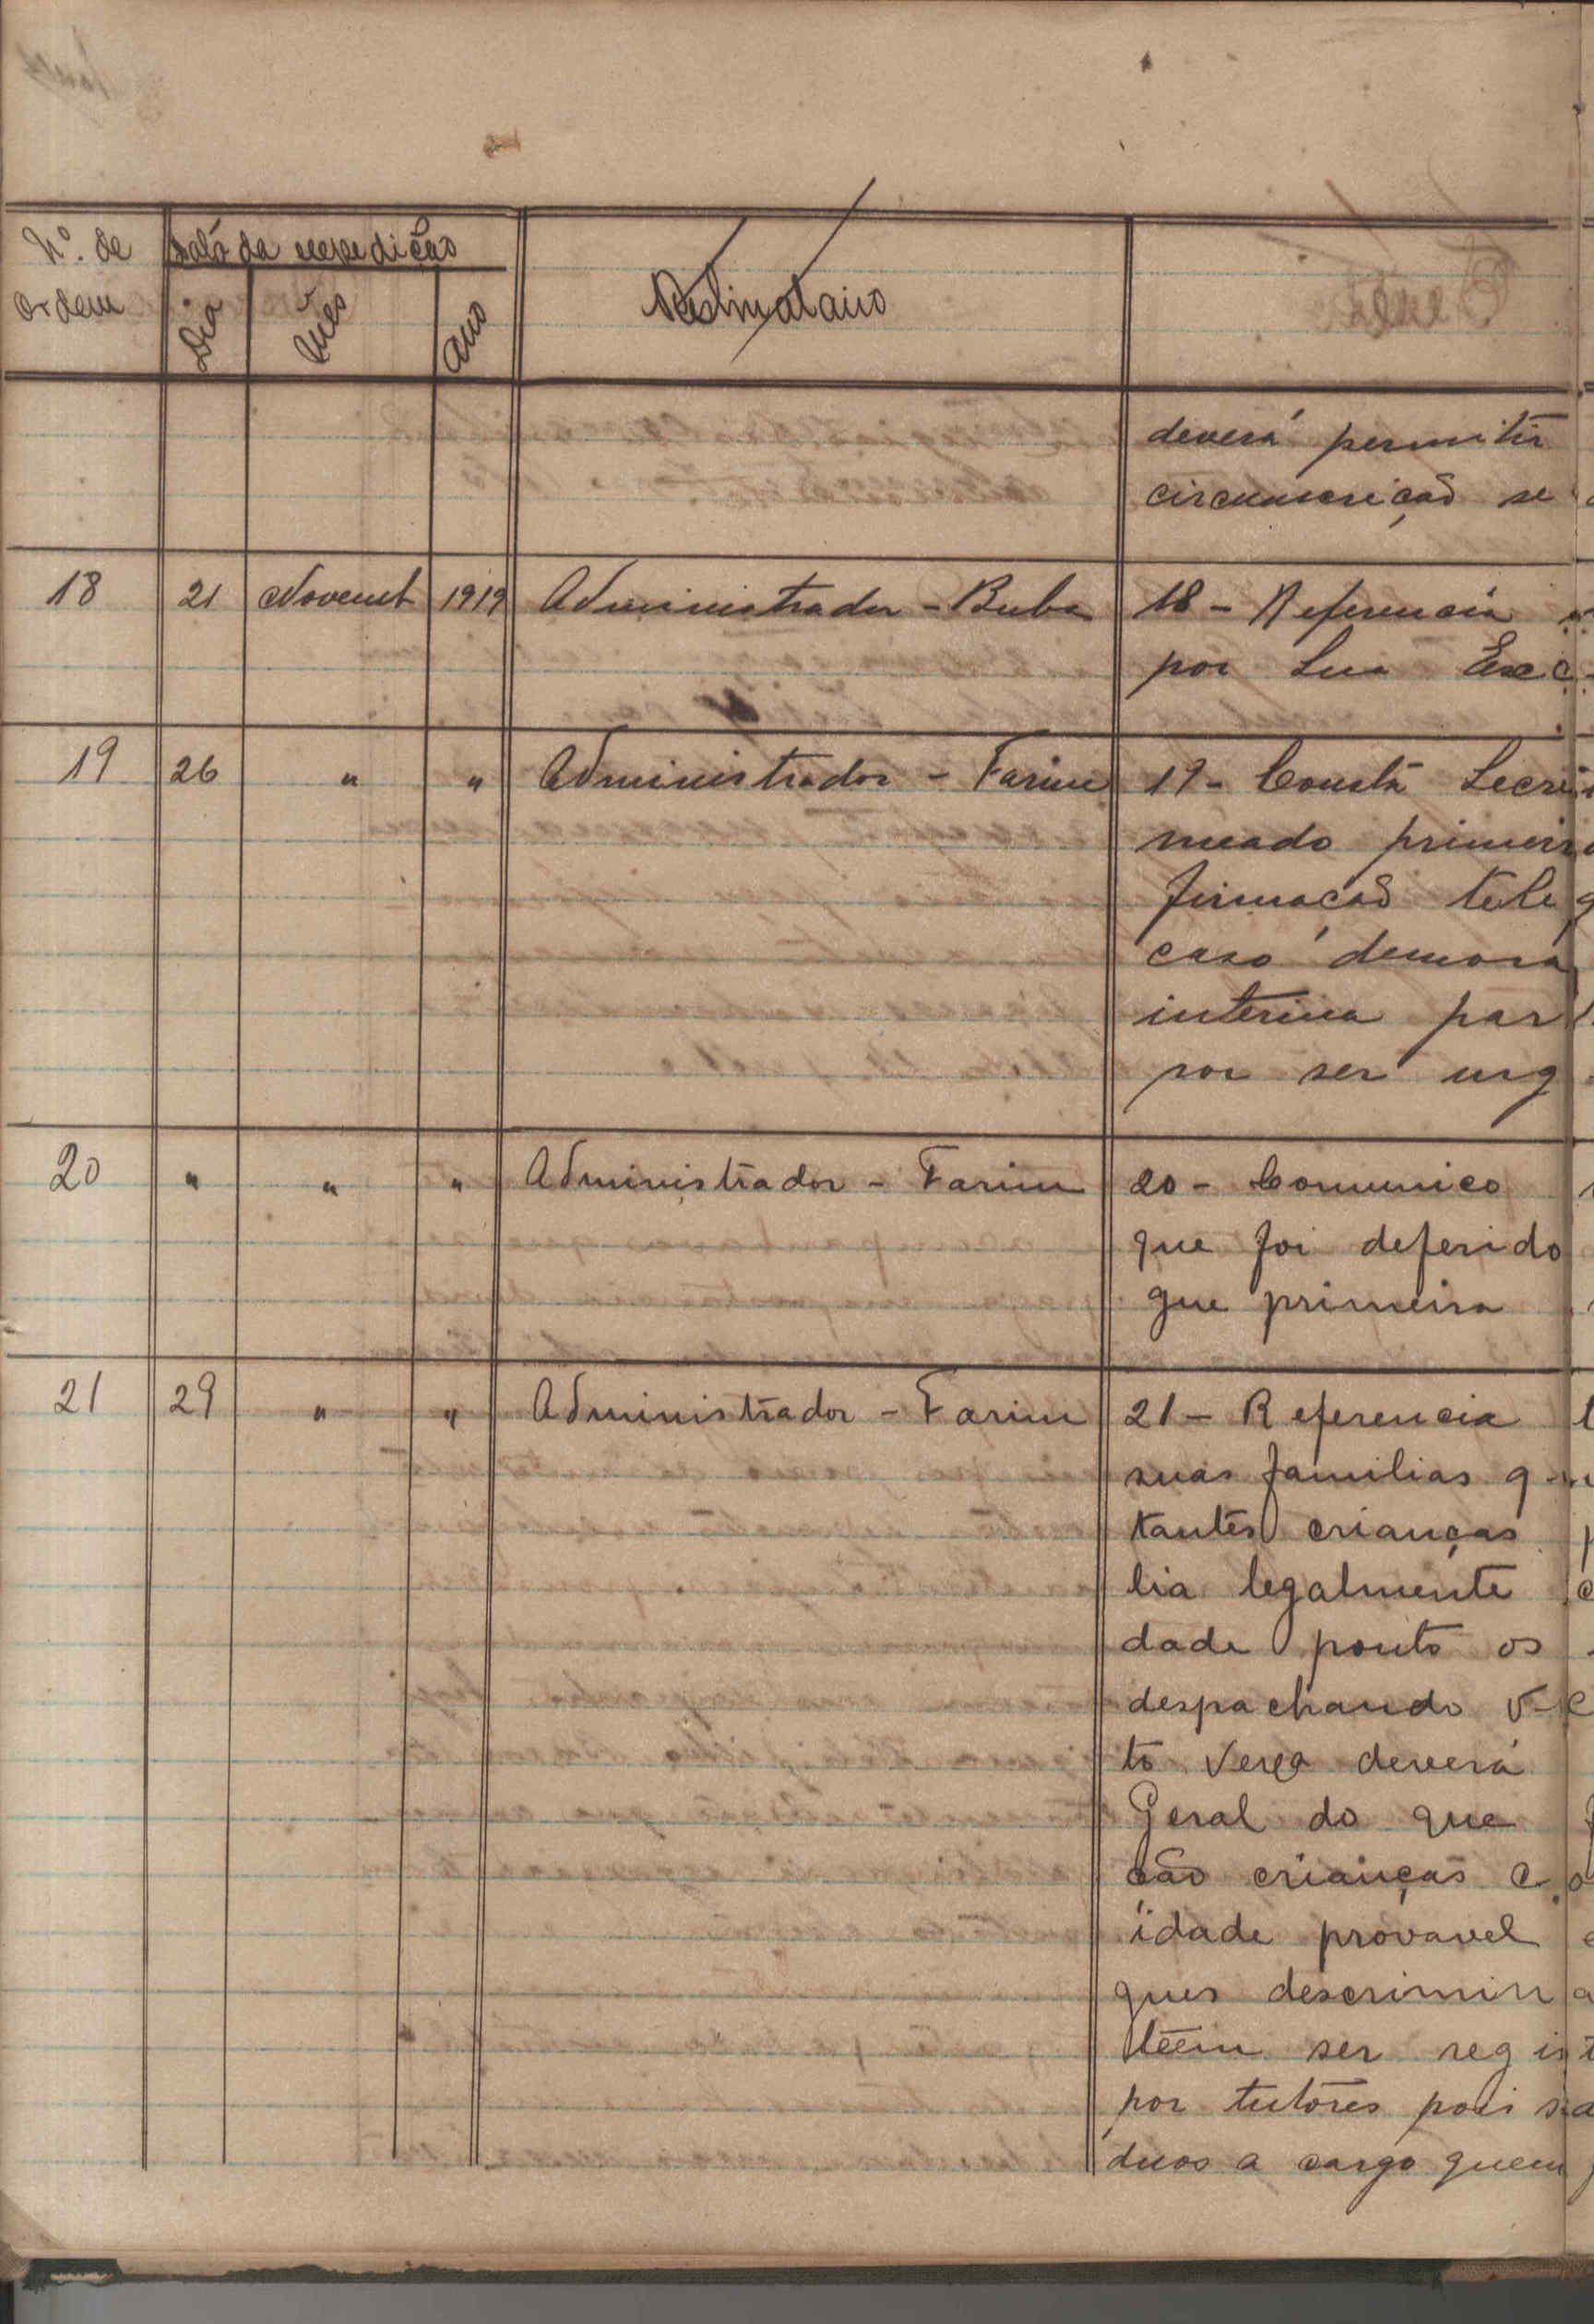 Nº. de Data da expedição Destinatario
Ordem Dia Mês Ano
deverá permitir
circunscrição se
18 21 Novemb 1919 Administrador - Buba 18 - Referencia
por Sua Exc
19 26 " " Administrador - Farim 19 - Constã Secre
meado primeir
firmação teleg
caso demora
interina par
por ser urg
20 " " " Administrador - Farim 20 - Comunico
que foi deferido
que primeira
21 29 " " Administrador - Farim 21 - Referencia
suas familias q
tantes crianças
lia legalmente
dade ponto os
despachando V
to Vexa deverá
Geral do que
ção crianças
idade provavel
ques descrimin
têem ser regis
por tutores pois
duos a cargo quem